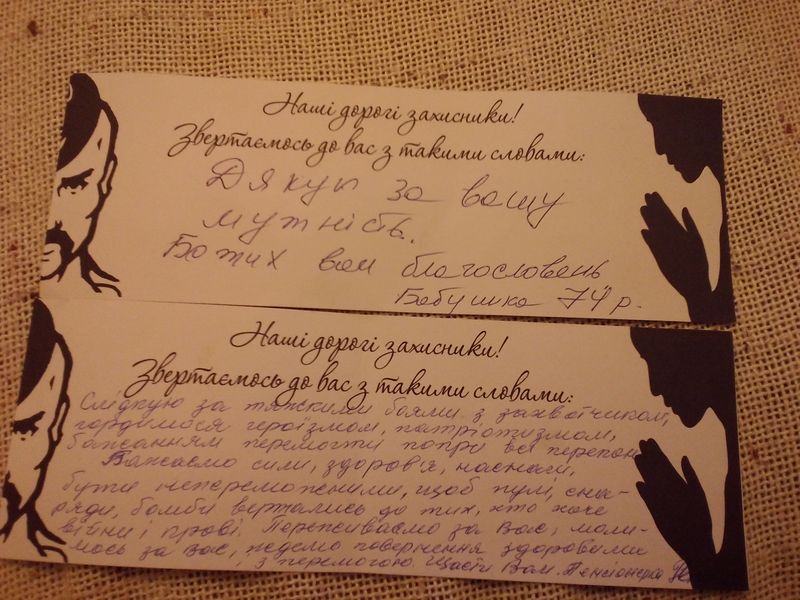 Наші дорогі захисники!
Звертаємось до вас з такими словами:
Дякую за вашу
мужність.
Божих вам благословень
Бабушка 74 р.
Наші дорогі захисники!
Звертаємось до вас з такими словами:
Слідкую за тяжкими боями з
гордимося героїзмом, патріотизмом,
бажанням перемогти попри всі
Бажаємо сили, здоров'я, наснаги,
бути непереможеними, щоб кулі, сна-
ряди, бомби вертались до тих, хто хоче
війни і крові. Переживаємо за Вас, моли-
мось за Вас, ждемо повернення здоровими
з перемогою. Щастя Вам. Пенсіонерка